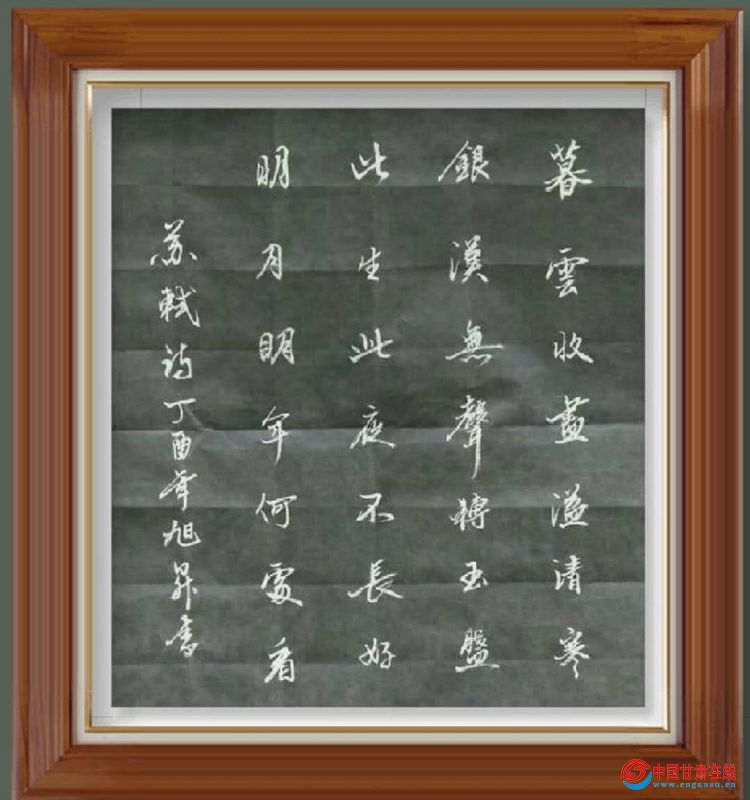 暮雲收盡溢清寒
銀漢無聲轉玉盤
此生此夜不長好
明月明年何處看
苏轼诗丁酉年旭昇書
中国甘肃在线
www.cngansu.cn